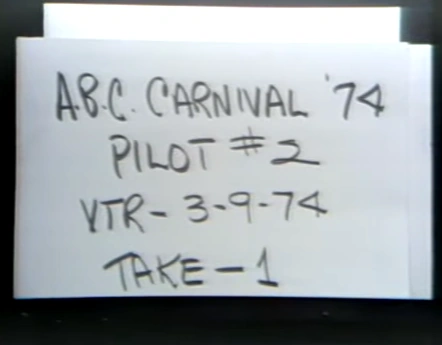 A.B.C. CARNIVAL '74
PILOT #2
VTR- 3-9-74
TAKE-1